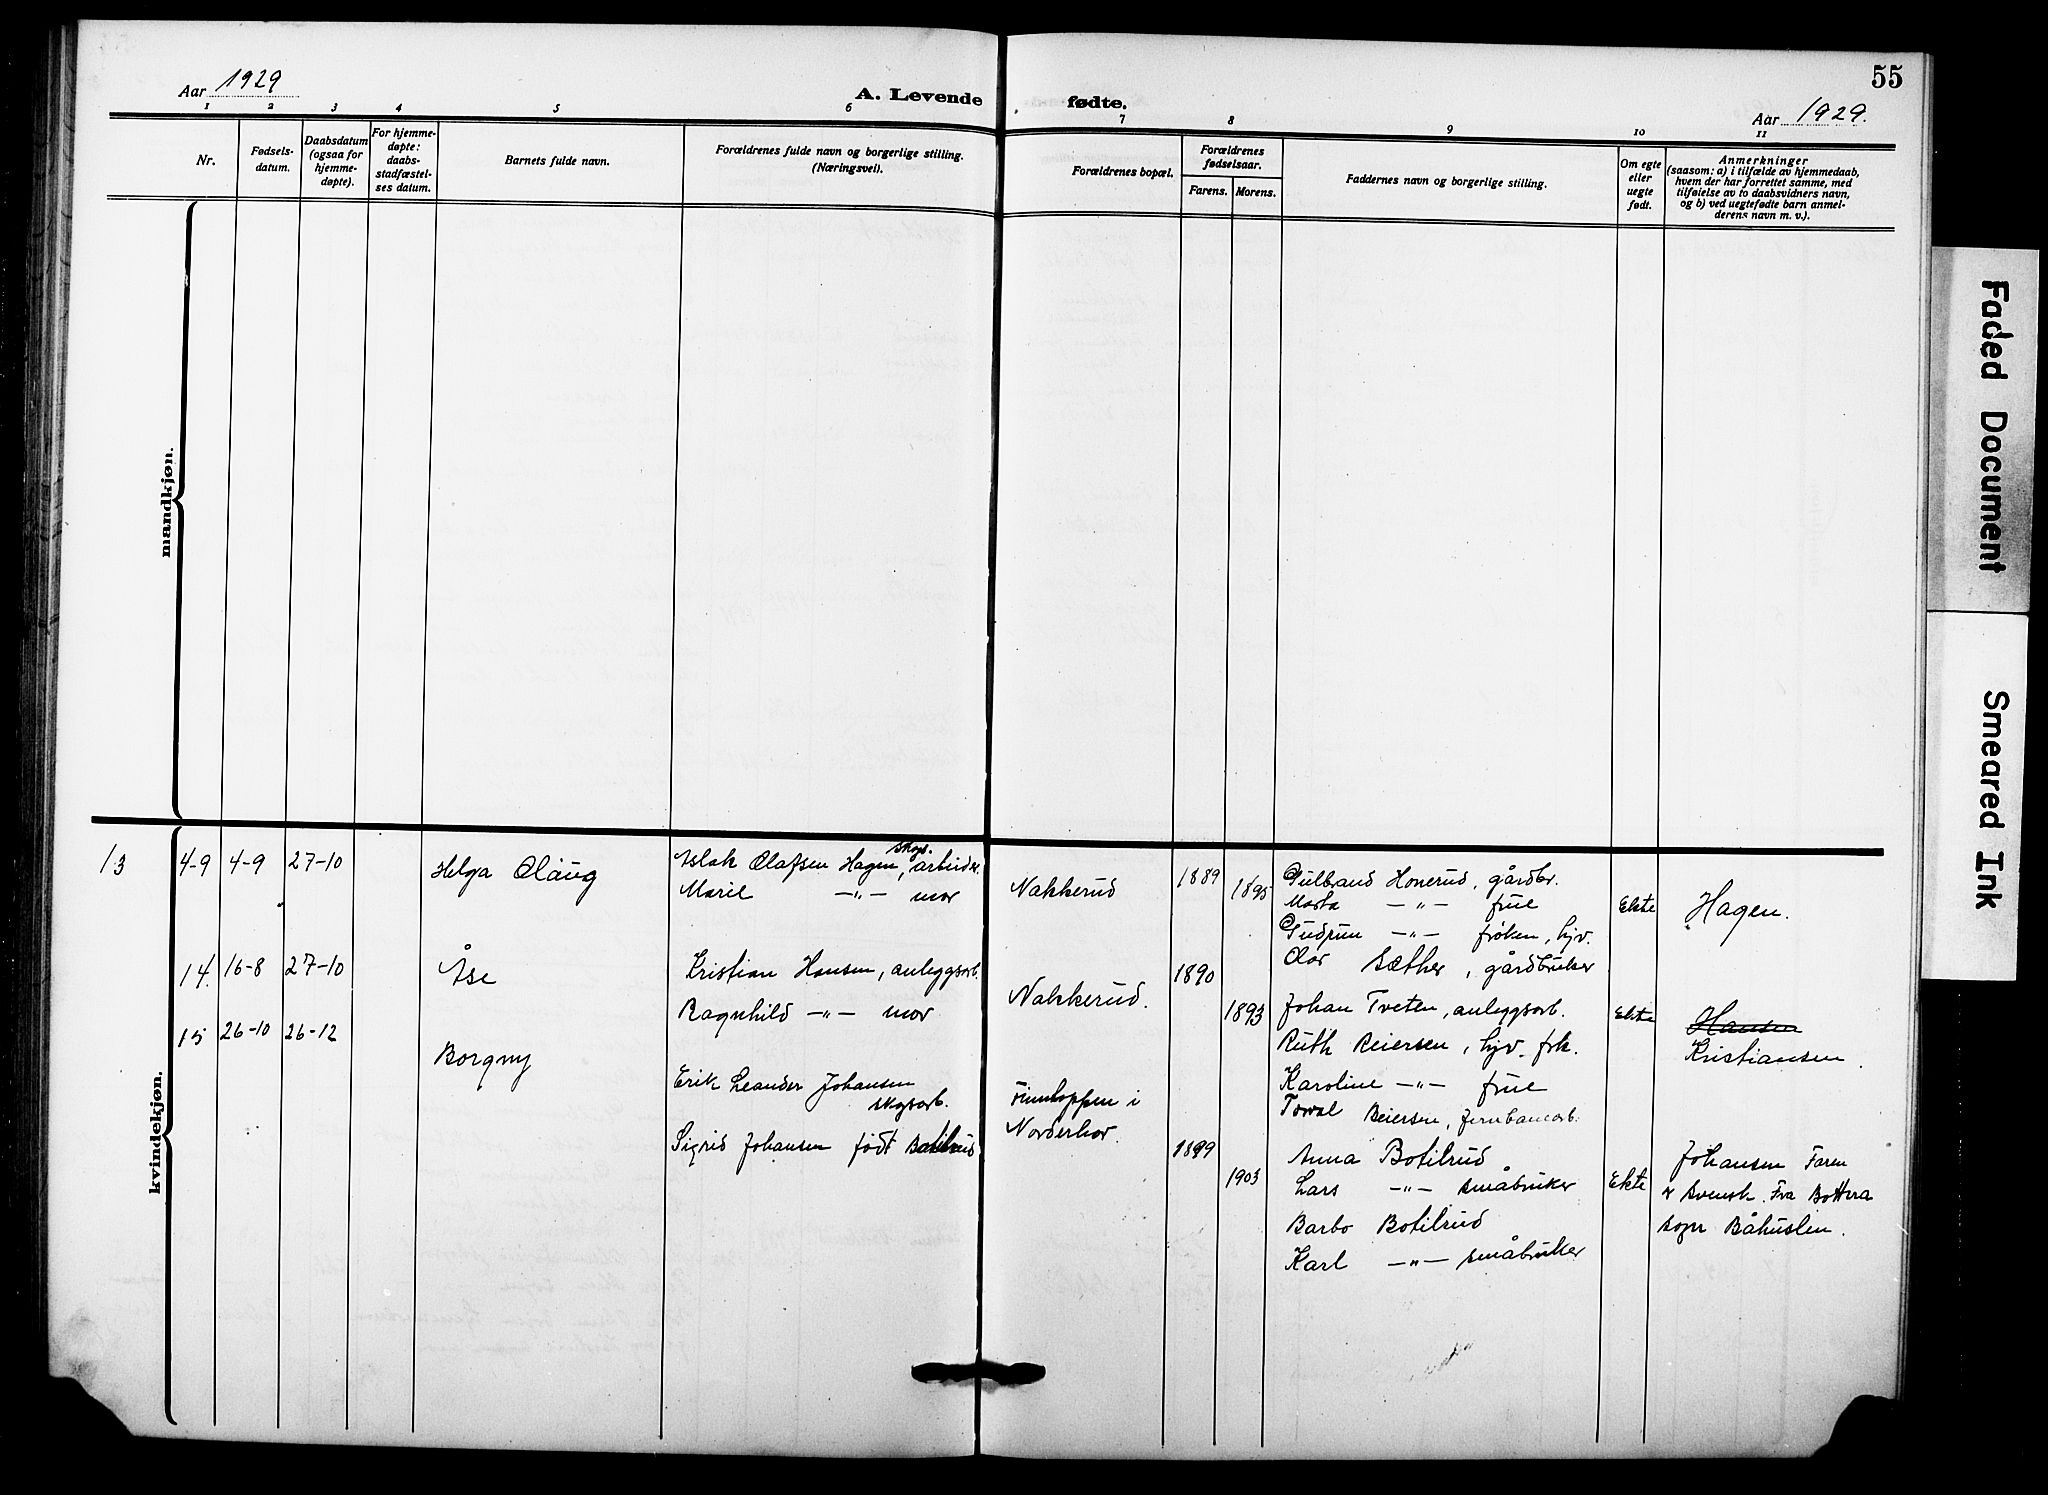 55
Aar 1929
A. Levende fødte.
Aar 1929.
1 2 3 4 5 6 7 8 9 10 11
Nr.
Fødsels-
datum.
Daabsdatum
(ogsaa for
hjemme-
døpte).
For hjemme-
døpte:
daabs-
stadfæstel-
ses datum.
Barnets fulde navn.
Forældrenes fulde navn og borgerlige stilling.
(Næringsvei).
Forældrenes bopæl.
Forældrenes
fødselsaar.
Farens. Morens.
Faddernes navn og borgerlige stilling.
Om egte
eller
uegte
født.
Anmerkninger
(saasom: a) i tilfælde av hjemmedaab,
hvem der har forrettet samme, med
tilføielse av to daabsvidners navn,
og b) ved uegtefødte barn anmel-
derens navn m. v.).
mandkjøn.
kvindekjøn.
13
4-9
4-9
27-10
Helga Olaug
Aslak Olafsen Hagen, skogs.arbeider
Marie -"- mor
Nakkerud
1889
1895
Gulbrand Honerud, gårdbr.
Marta -"- frue
Gudrun -"- frøken, hjv.
Olar Sæther, gårdbruker
Ekte
Hagen.
14.
16-8
27-10
Åse
Kristian Hansen, anleggsarb.
Ragnhild -"- mor
Nakkerud.
1890
1893
Johan Tveten, anleggsarb.
Ruth Reiersen, hjv. frk.
Karoline -"- frue
Torval Reiersen, jernbanearb.
Ekte
Hansen
Kristiansen.
15
26-10
26-12
Borgny
Erik Leander Johansen
skogsarb.
Sigrid Johansen født Botilrud
Finntoppen i
Norderhov.
1899
1903
Anna Botilrud
Lars -"- småbruker
Barbo Botilrud
Karl -"- småbruker
Ekte
Johansen Faren
er svensk. Fra Bottna
sogn Båhuslen.
Faded Document
Smeared Ink